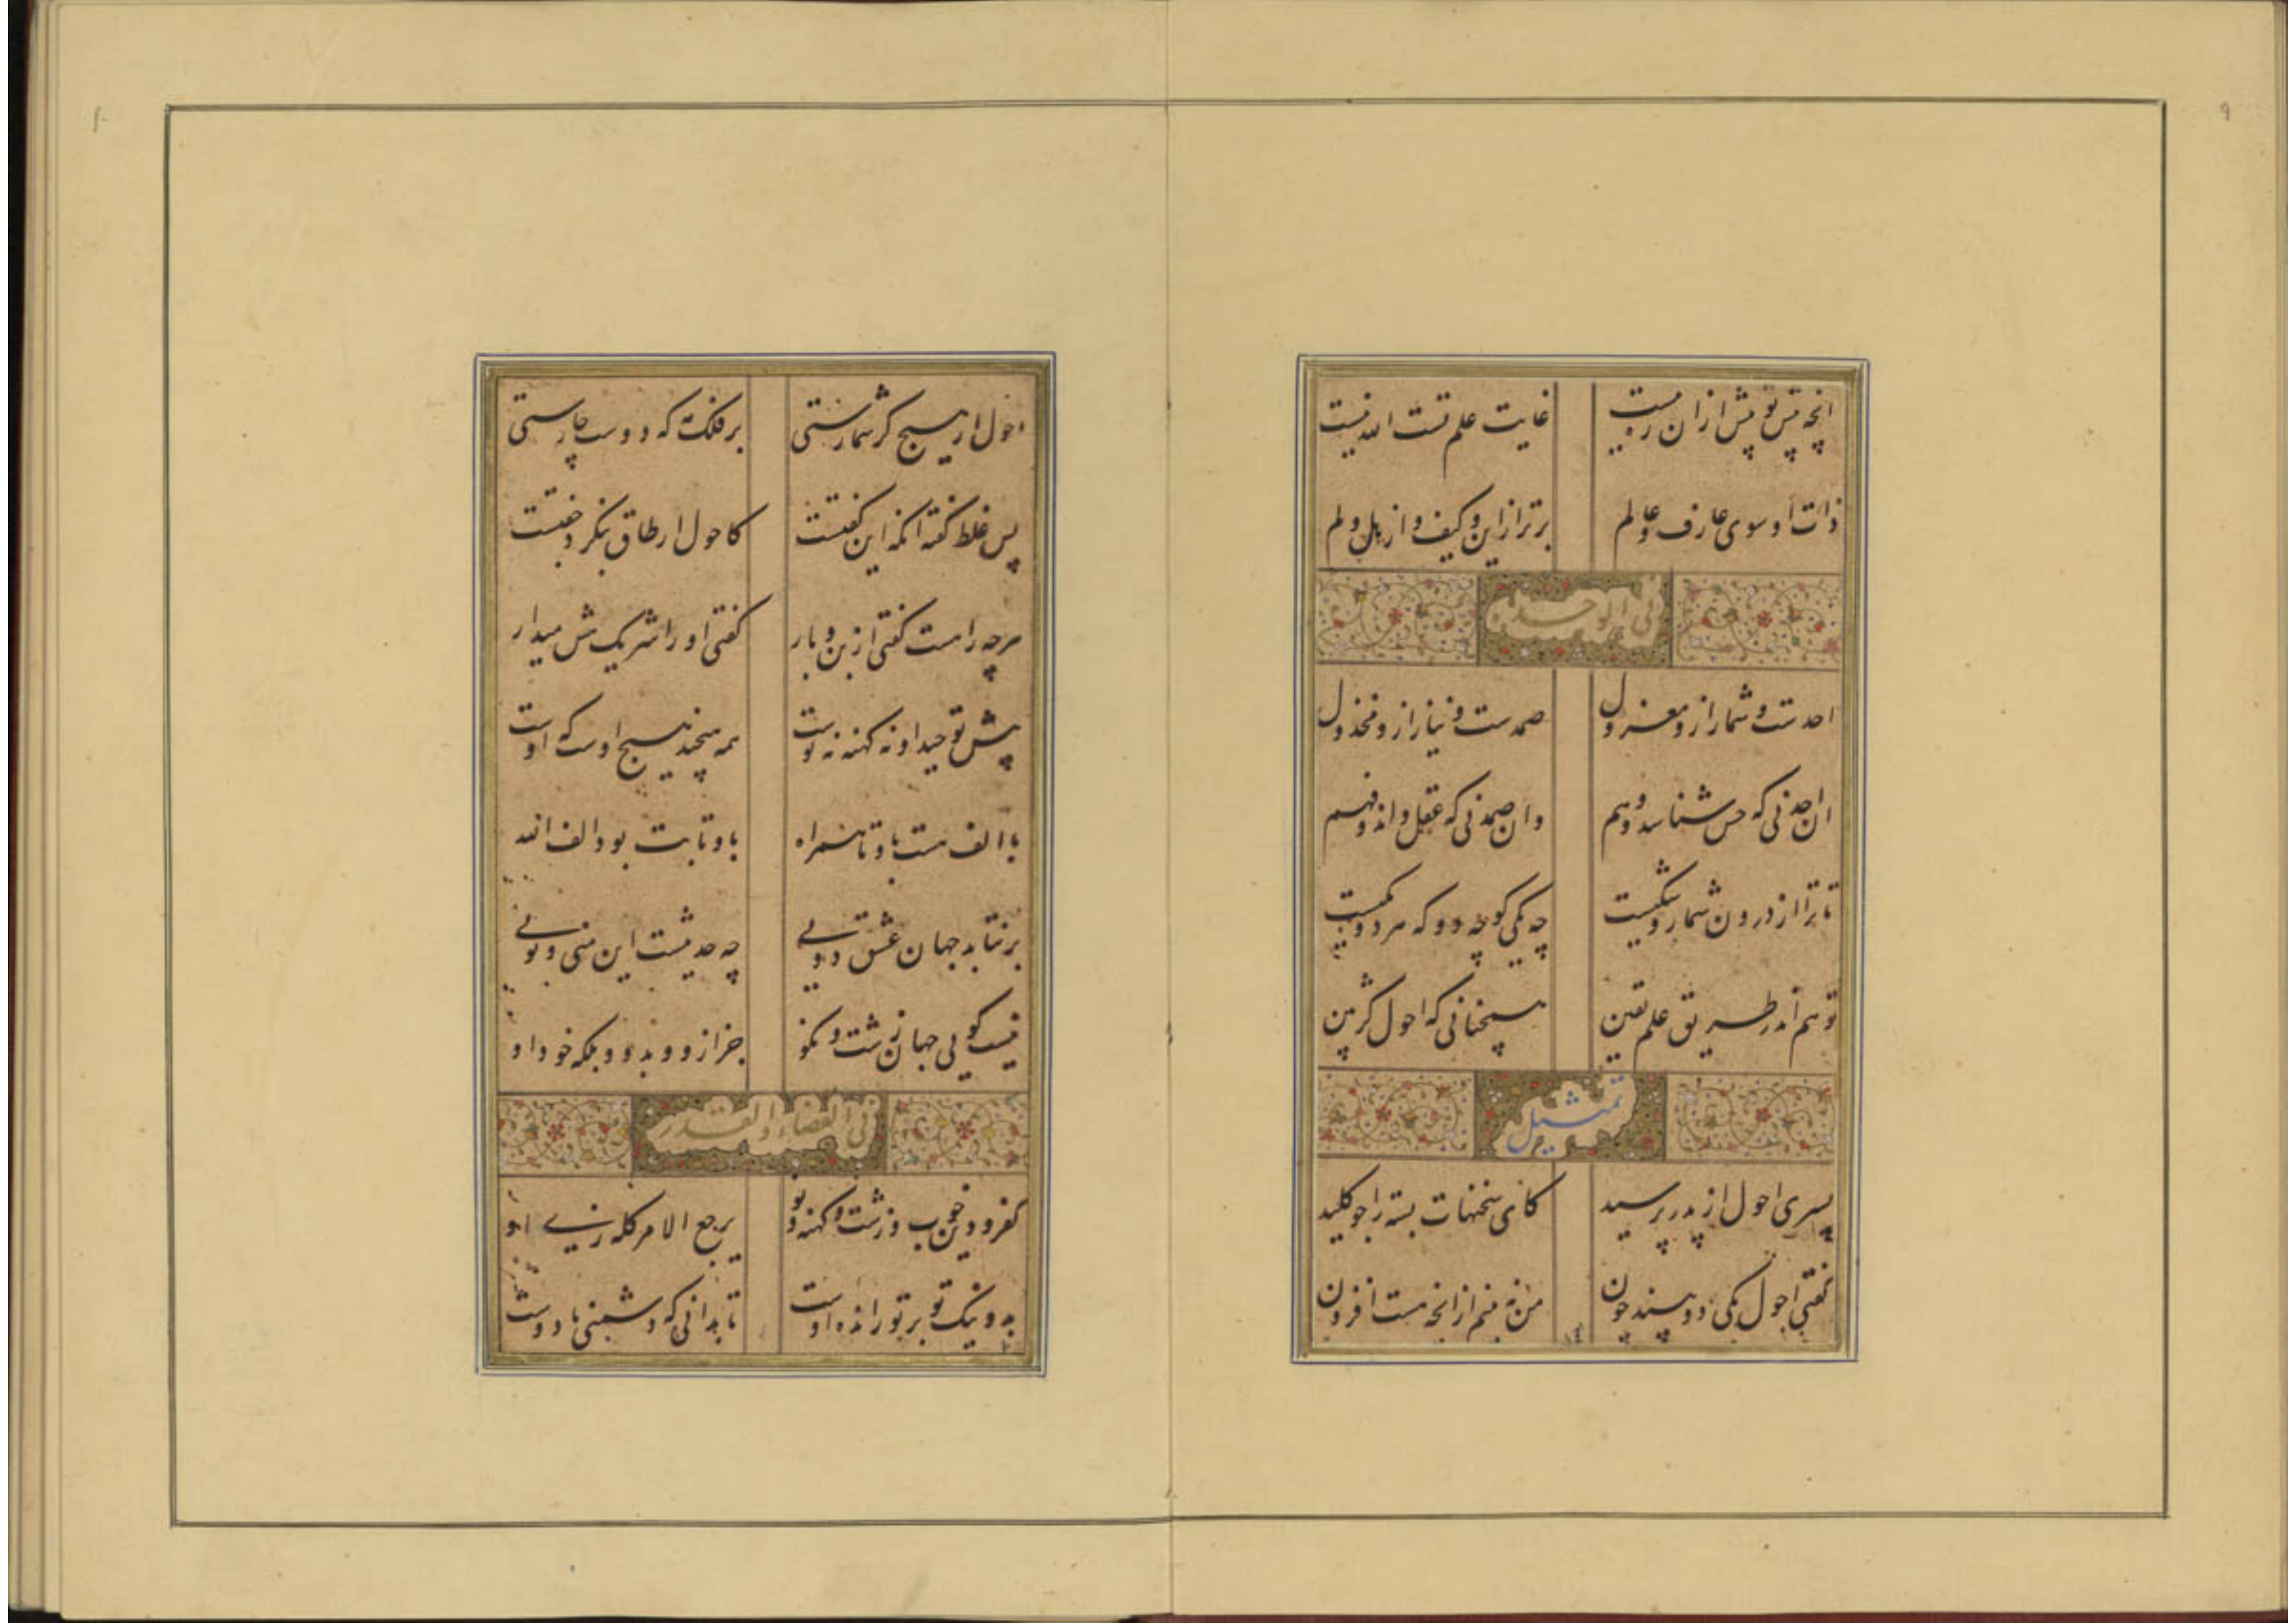 ۹
انچه پیش تو پیش ازان ره نیست
غایت علم تست الله نیست
ذات او سوی عارف و عالم
برتر از این و کیف و از هل و لم
فی الوحدت
احدست و شمار ازو معزول
صمدست و نیاز ازو مخذول
ان احد نی که حس شناسد و وهم
وان صمد نی که عقل داند و فهم
تا ترا از درون شمار و شکیست
چه یکی گو چه دو که هر دو یکیست
تو هم اندر طریق علم یقین
همچنانی که احول کژبین
تمثیل
پسری احول از پدر پرسید
کای سخنهات بسته را چو کلید
گفتی احول یکی دو بیند چون
من نه بینم از انچه هست افزون
۱۰
احول ار هیچ کژ شمارستی
بر فلک مه که دوست چارستی
پس غلط گفته انکه این گفتست
کاحول ار طاق بنگرد جفتست
هرچه را هست گفتی از بن و بار
گفتی او را شریک هش میدار
پیش توحید او نه کهنه نه نوست
همه هیچند هیچ اوست که اوست
با الف هست با و تا همراه
با و تا بت بود الف الله
برنتابد جهان عشق دویی
چه حدیثست این منی و تویی
نیست گویی جهان زشت و نکو
جز ازو و بدو و بلکه خود او
فی القضاء و القدر
کفر و دین خوب و زشت و کهنه و نو
یرجع الامر کله زی او
بد و نیک تو بر تو رانده اوست
تا بدانی که دشمنی یا دوست